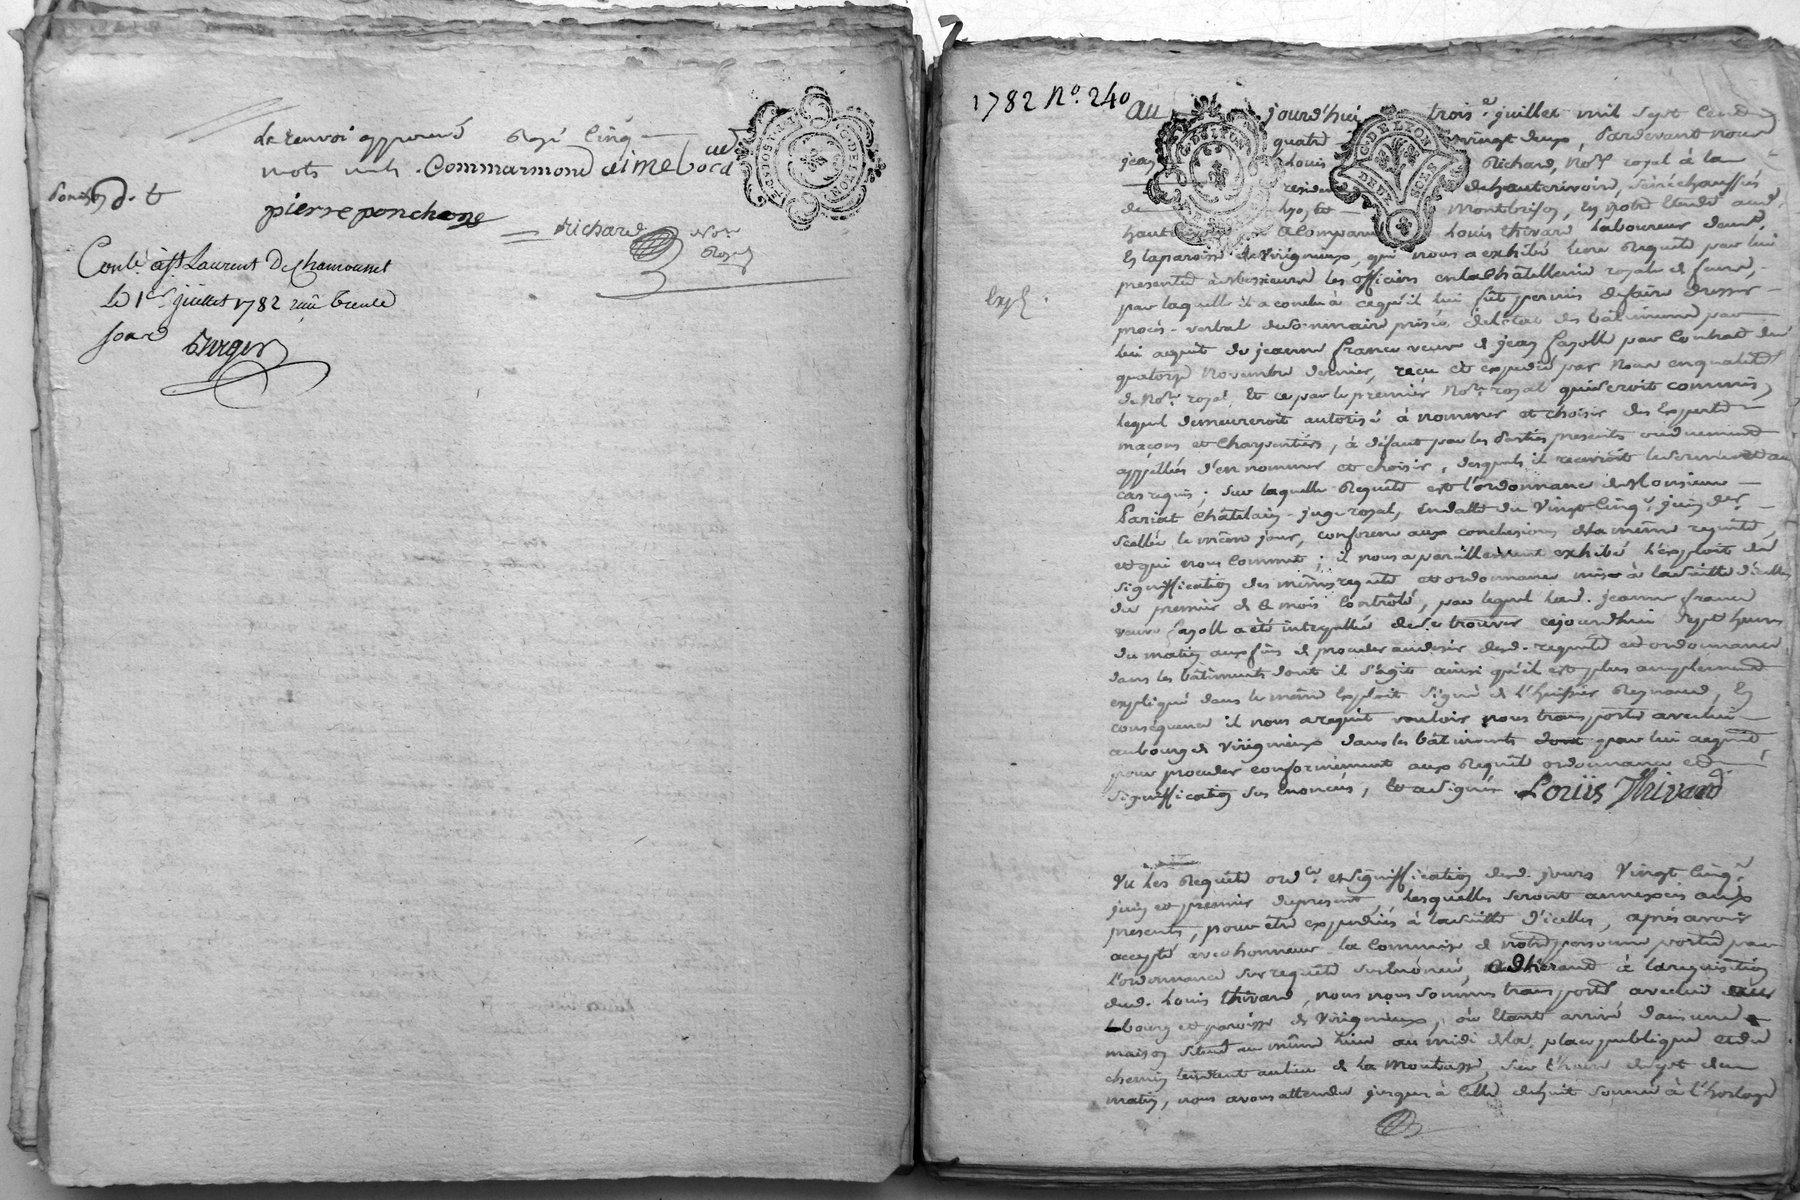 Le renvoi approuvé Rayé cinq
mots nuls. Commarmond aimé bocd
pierre ponchon
Richard Nore
Royal
Conlé à St Laurent De Chamousset
le 1er juillet 1782 reçu trente
sous
Burger
G. DE LYON
DEUX SOLS
1782 No. 240
Aujourd'hui trois.e juillet mil sept cent
quatre vingt deux, pardevant nous
jean Louis Richard, Not.re royal à la
résidence de hauterivoire, sénéchaussée
de Lyon et Montbrison, en notre Etude aud.
haut a Comparu Louis thivard laboureur demt.
En la paroisse de Virigneux, qui nous a exhibé une Requête par lui
presentée à Messieurs les officiers en la Châtellenie royale de feurs,
par laquelle il a conclu à ce qu'il lui fût permis de faire dresser
procès-verbal du sommaire prisée de l'état des bâtiments par
lui acquit de jeanne france veuve de jean fayolle par Contrat du
quatorze Novembre dernier, reçu et expedié par Nous en qualité
de Not.re royal, Et ce par le premier Not.re royal qui seroit commis,
lequel demeureroit autorisé à nommer et choisir des Experts
maçons et Charpentiers, à défaut par les parties presentes ou duement
appellées d'en nommer et choisir, desquels il recevroit le serment au
cas requis; sur laquelle Requête est l'ordonnance de Monsieur
Châtelain-juge royal, En datte du Vingt Cinq.e juin der.
scellée le même jour, conforme aux conclusions de la même requête,
et qui nous Commet; il nous a pareillement exhibé l'exploit de
signiffication des mêmes requête et ordonnance mise à la suitte d'icelles
du premier de ce mois Contrôlé, par lequel lad. jeanne france
veuve fayolle a été interpellée de se trouver cejourd'hui sept heures
du matin aux fins de proceder au desir desd. requête et ordonnance
dans les bâtiments dont il s'agit ainsi qu'il est plus amplement
expliqué dans le même Exploit signé de l'huissier Reynaud, En
conséquence il nous a requit vouloir nous transporter avec lui
au bourg de Virigneux dans les bâtiments dont par lui acquit
pour proceder conformément aux Requête ordonnance et
signiffication sus énoncés, Et a signé. Louis Thivard
Vu Les Requête ord.ce et signiffication desd. jours Vingt Cinq.e
juin et premier du present, lesquelles seront annexées aux
presentes, pour être expediées à la suitte d'icelles, après avoir
accepté avec honneur la Commise de notre personne portée par
l'ordonnance sur requête sus énoncé, adhérant à la requisition
dud. Louis thivard, nous nous sommes transporté avec lui
bourg et paroisse de Virigneux, où étant arrivé dans une
maison située au même lieu au midi de la place publique et du
chemin tendant au lieu de la sur l'heure de sept du
matin, nous avons attendu jusques à Celle de huit sonnée à l'horloge